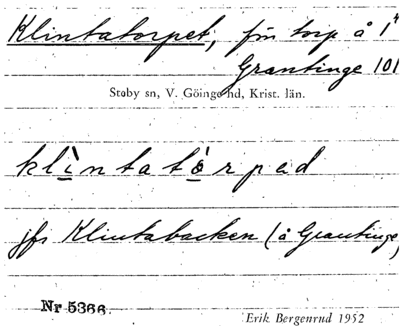 Klintatorpet, fin torp å 1"
Grantinge 101
Stoby sn, V. Göinge hd, Krist. län.
klìntatòrpəd
jfr Klintabacken (å Grantinge)
Nr 5366.
Erik Bergenrud 1952